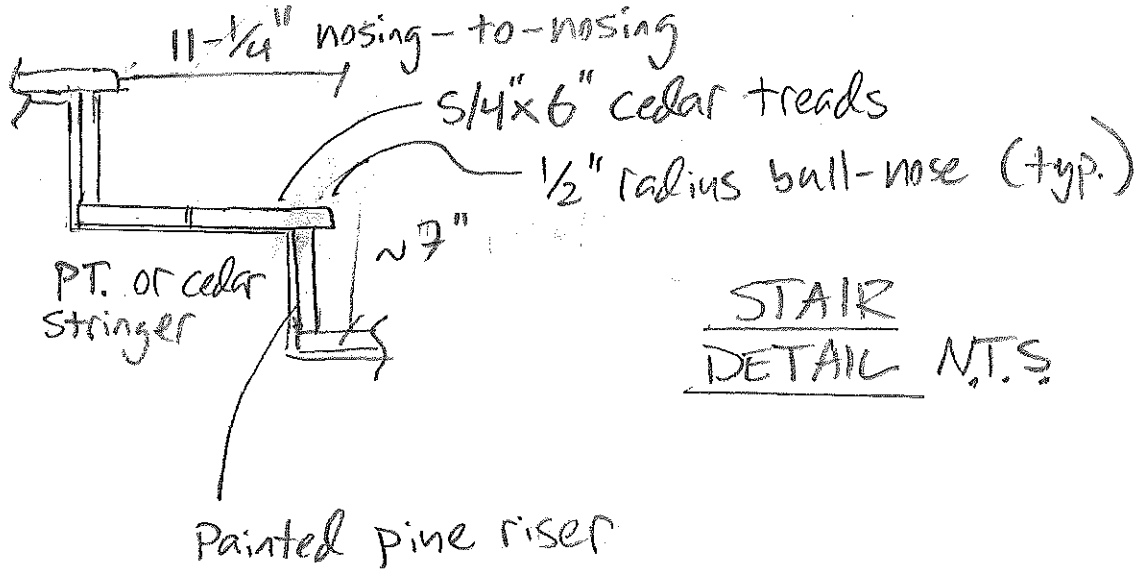 11-1/4" nosing-to-nosing
5/4"x6" cedar treads
1/2" radius bull-nose (typ.)
~7"
PT. or cedar
stringer
STAIR
DETAIL N.T.S.
Painted pine riser